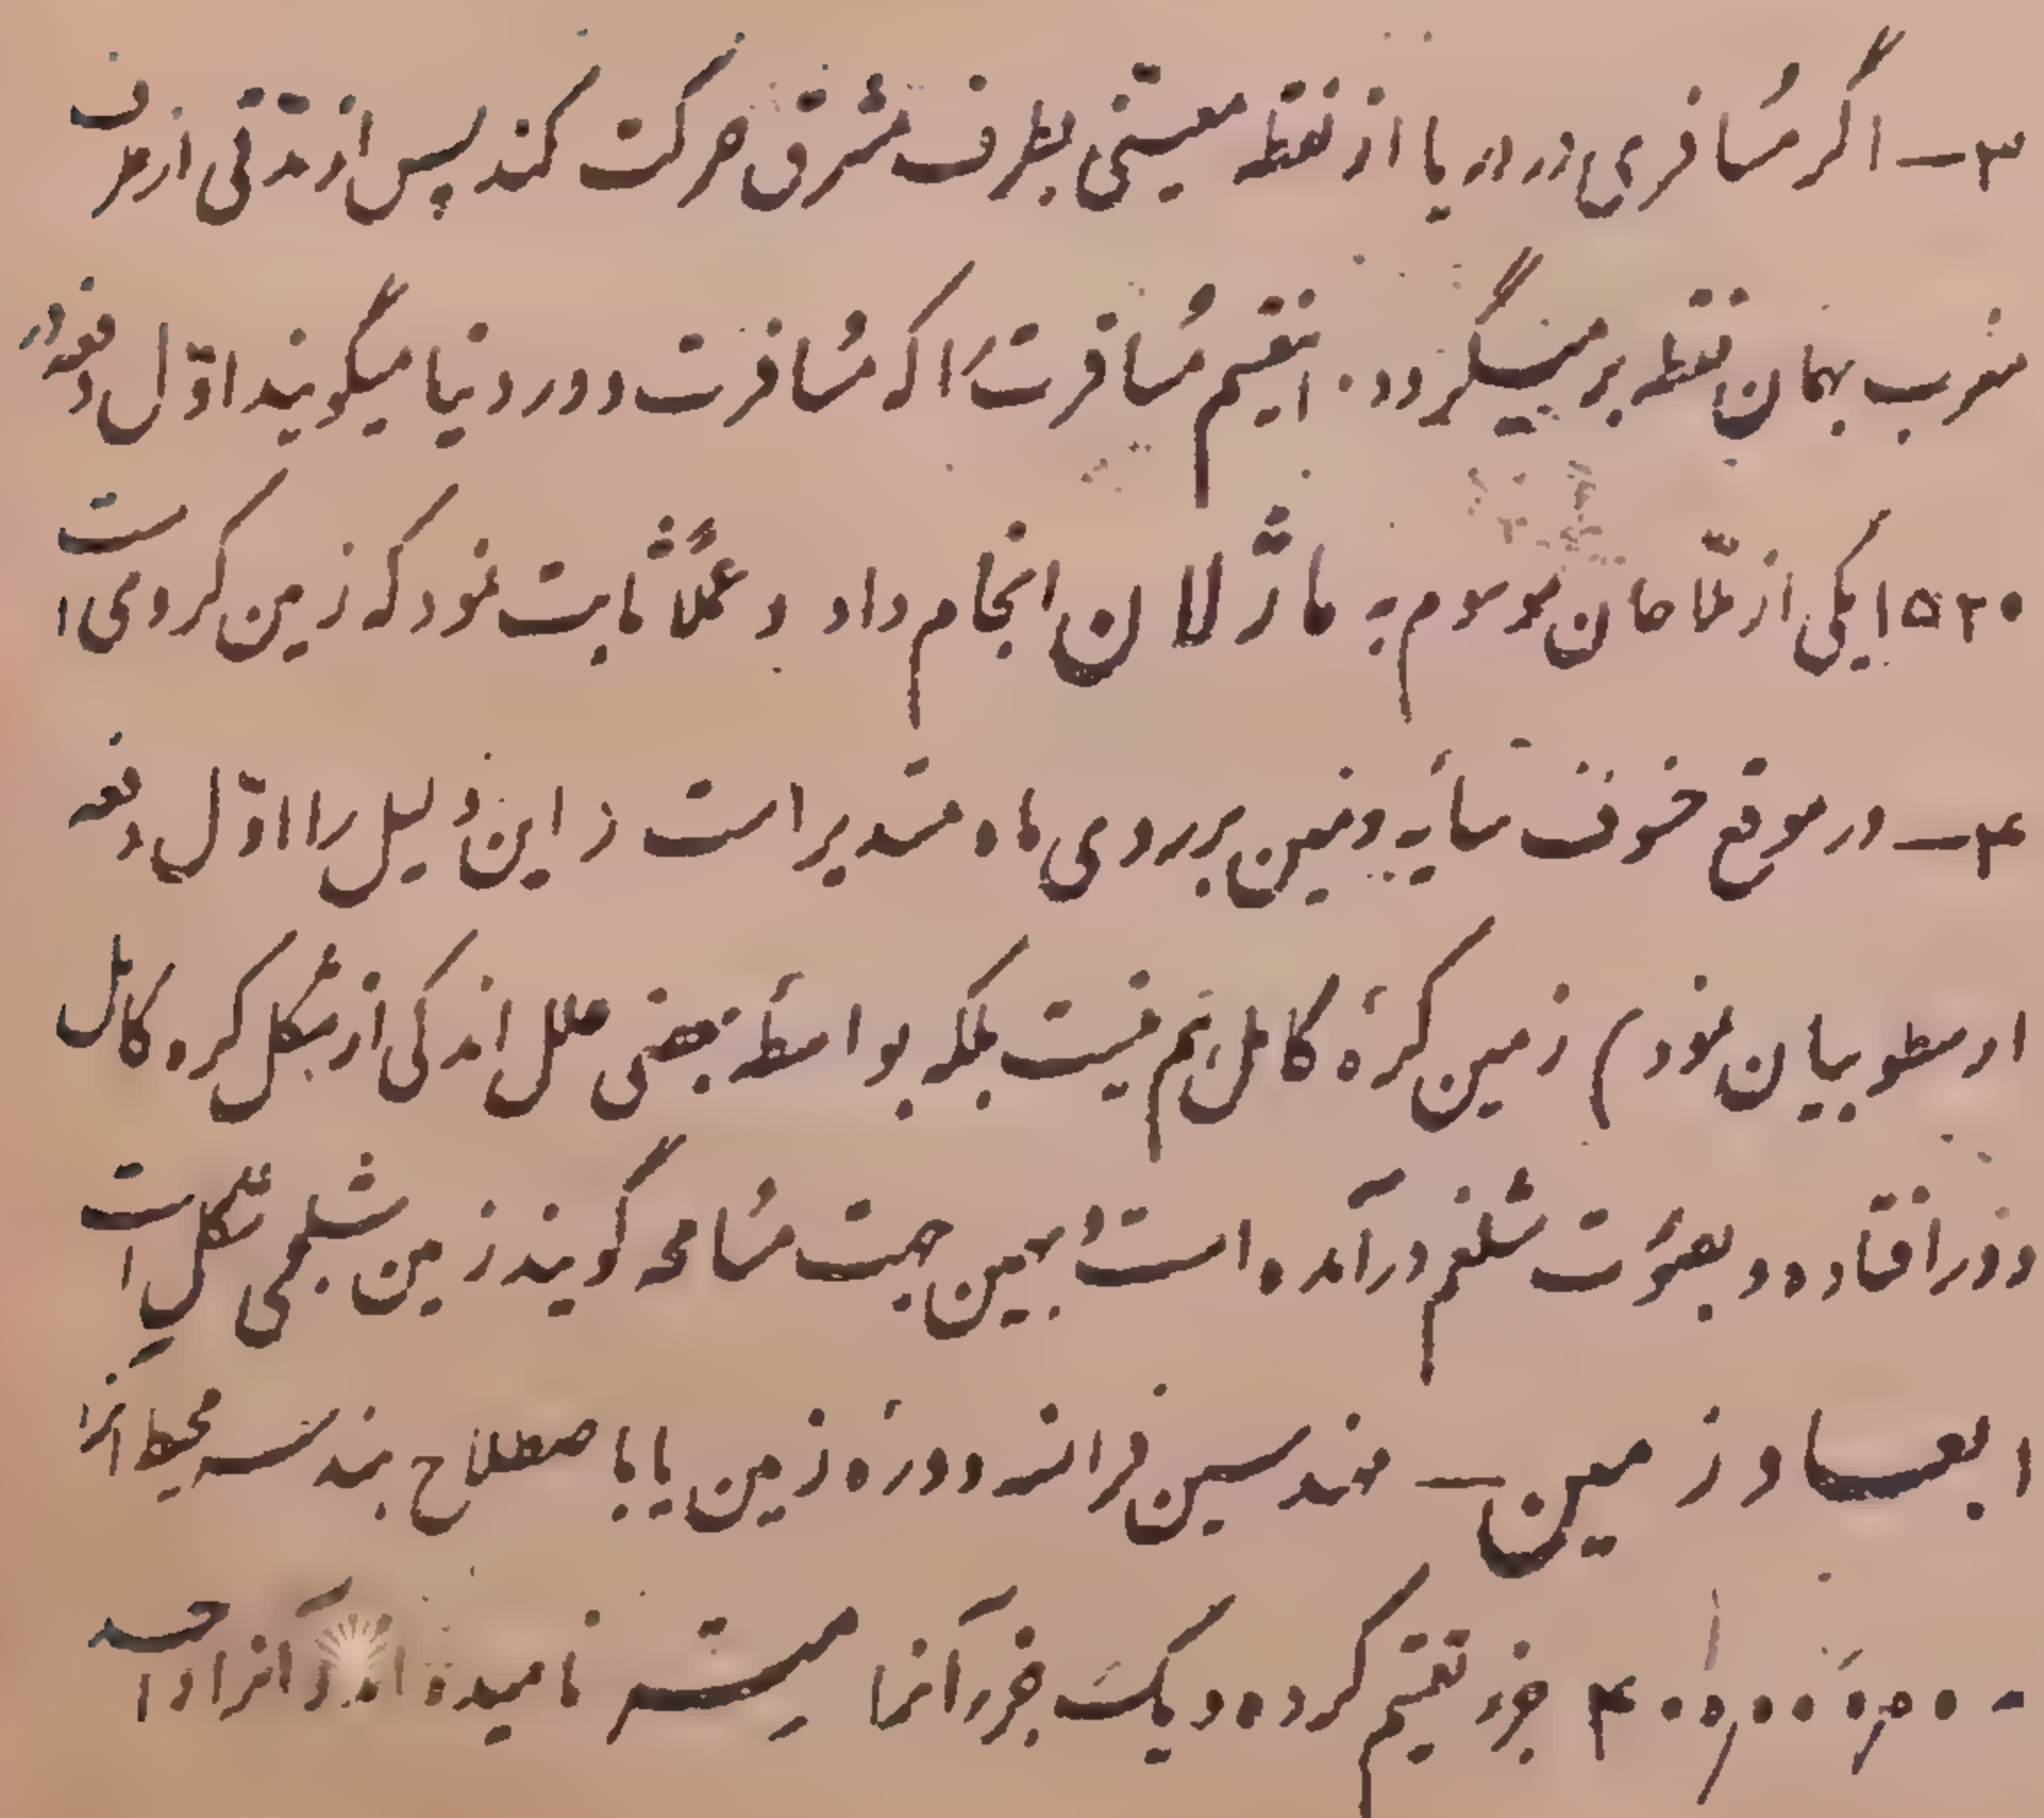 ۳ — اگر مسافری در دریا از نقطه معینی بطرف مشرق حرکت کند پس از مدتی از طرف
مغرب بهمان نقطه بر میگردد. اینقسم مسافرت را که مسافرت دور دنیا میگویند اوّل دفعه در
۱۵۲۰ یکی از ملّاحان موسوم به ماژلان انجام داد و عملاً ثابت نمود که زمین کروی است
۴ — در موقع خسوف سایه زمین بر روی ماه مستدیر است (این دلیل را اوّل دفعه
ارسطو بیان نمود) زمین کرهٔ کامل هم نیست بلکه بواسطهٔ بعضی علل اندکی از شکل کره کامل
دور افتاده و بصورت شلغم درآمده است و بهمین جهت مسامحه گویند زمین شلجمی شکل است
ابعاد زمین — مهندسین فرانسه دورهٔ زمین یا باصطلاح هندسه محیط آنرا
بـ ۴۰،۰۰۰،۰۰۰ جزء تقسیم کرده و یک جزء آنرا متر نامیده اند و آنرا واحد